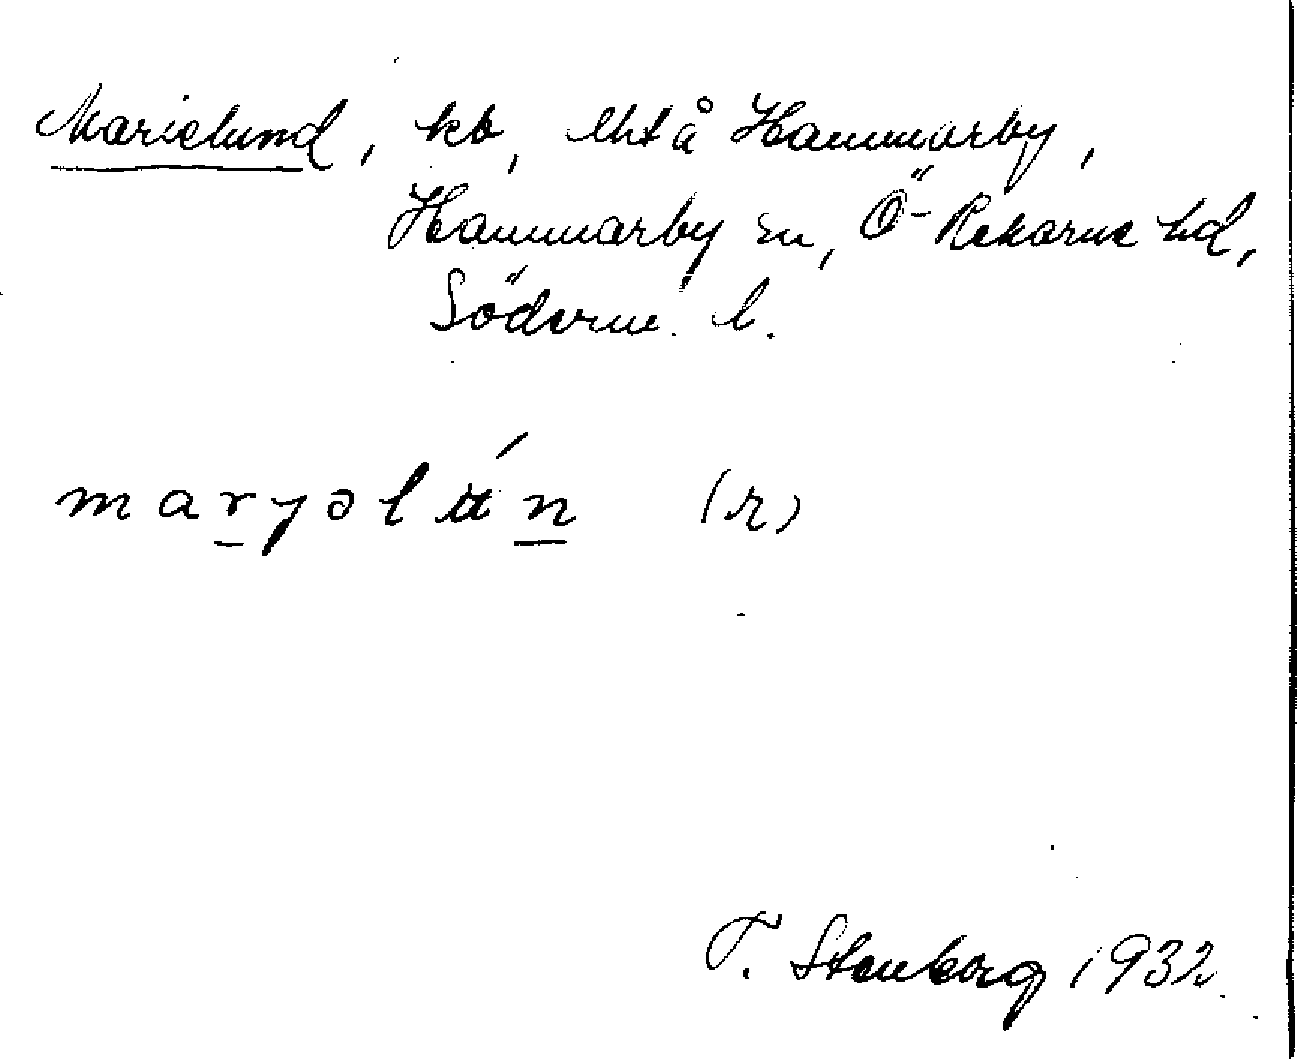 Marielund, kb, lht å Hammarby,
Hammarby sn, Ö-Rekarne hd,
Söderm. l.
maryəlún (r)
T. Stenborg 1932.